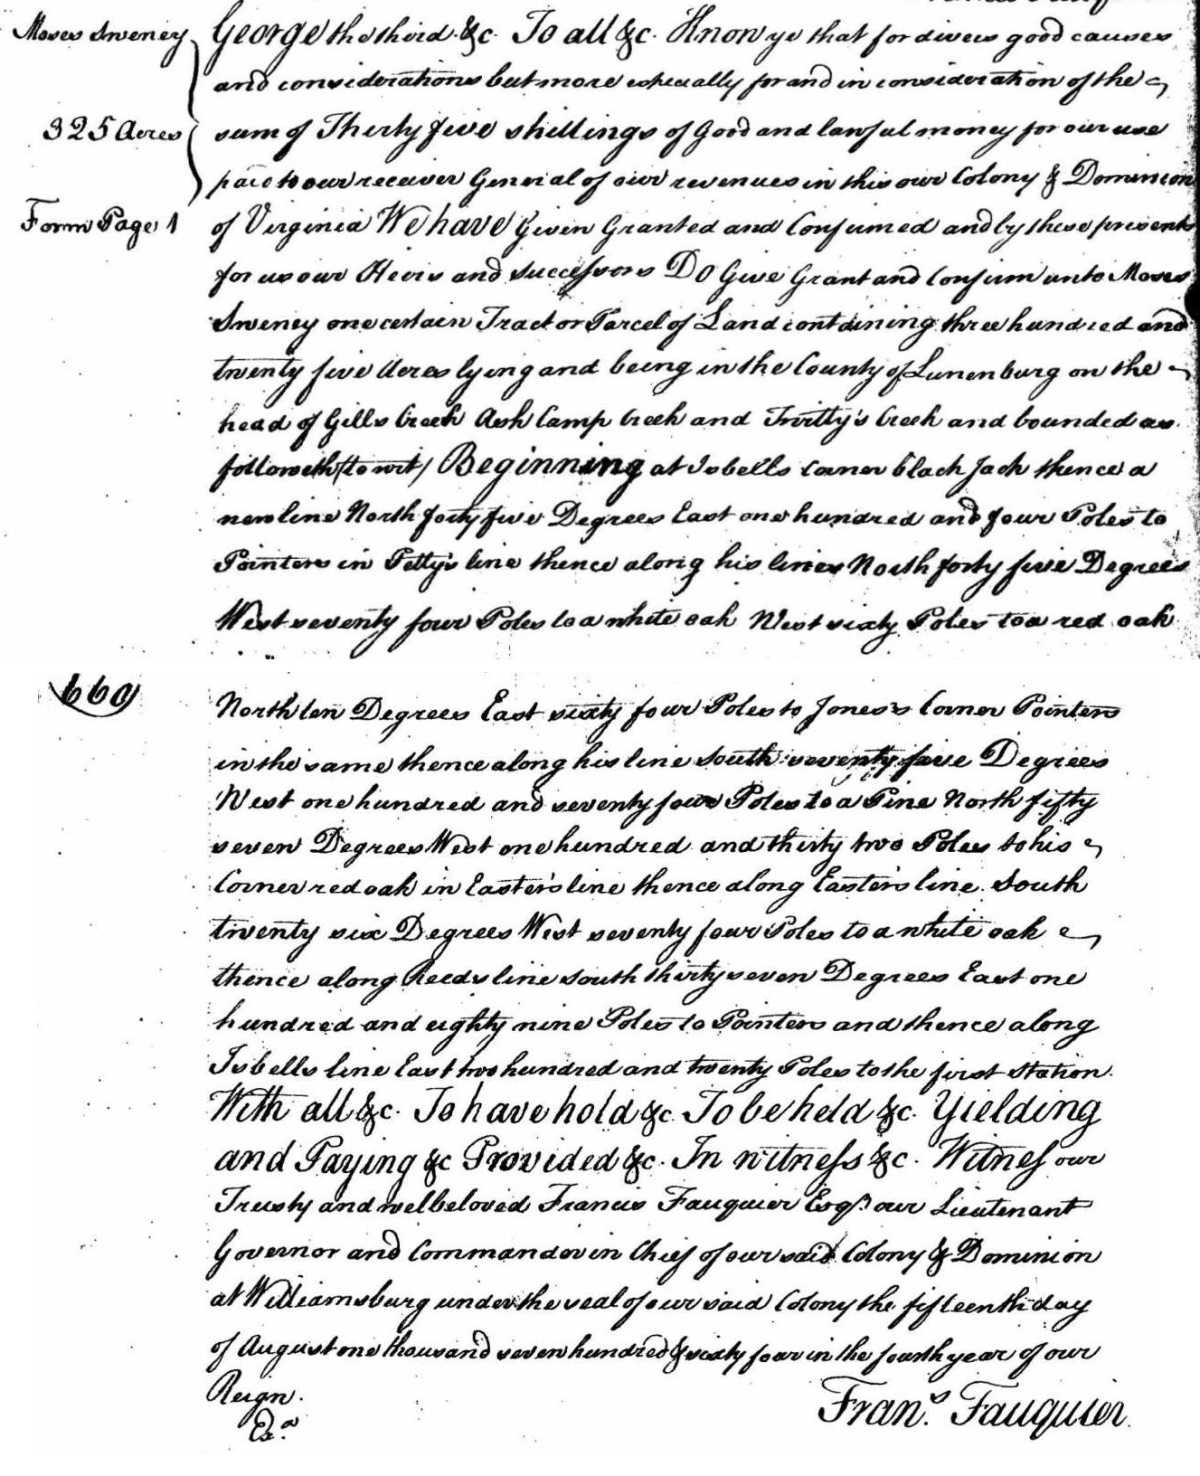 Moses Sweney
325 Acres
Form Page 1
George the third &c. To all &c. Know ye that for divers good causes
and considerations but more especially for and in consideration of the
sum of Thirty five shillings of Good and lawful money for our use
paid to our receiver General of our revenues in this our Colony & Dominion
of Virginia We have Given Granted and Confirmed and by these presents
for us our Heirs and Successors Do Give Grant and Confirm unto Moses
Sweney one certain Tract or Parcel of Land containing three hundred and
twenty five Acres lying and being in the County of Lunenburg on the
head of Gills Creek Ash Camp Creek and Twitty's Creek and bounded as
followeth (to wit) Beginning at Isbells corner black Jack thence a
new line North forty five Degrees East one hundred and four Poles to
Pointers in Petty's line thence along his lines North forty five Degrees
West seventy four Poles to a white oak West sixty Poles to a red oak
669
North ten Degrees East sixty four Poles to Jones's Corner Pointers
in the same thence along his line South seventy five Degrees
West one hundred and seventy four Poles to a Pine North fifty
seven Degrees West one hundred and thirty two Poles to his
Corner red oak in Easter's line thence along Easters line South
twenty six Degrees West seventy four Poles to a white oak
thence along Reeds line South thirty seven Degrees East one
hundred and eighty nine Poles to Pointers and thence along
Isbells line East two hundred and twenty Poles to the first Station.
With all &c. To have hold &c. To be held &c. Yielding
and Paying &c Provided &c. In witness &c. Witness our
Trusty and welbeloved Francis Fauquier Esqr. our Lieutenant
Governor and Commander in Chief of our said Colony & Dominion
at Williamsburg under the seal of our said Colony the fifteenth day
of August one thousand seven hundred & sixty four in the fourth year of our
Reign.
Exa.
Frans. Fauquier.